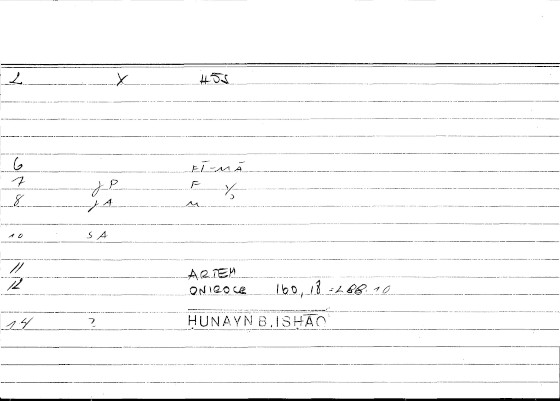 2 X HSS
6 FĪ-MĀ
7 JP F Y,
8 JA M
10 SA
11 ARTEM
12 ONIROCR 160, 18 = 288.10
14 ? HUNAYN B. ISHĀQ